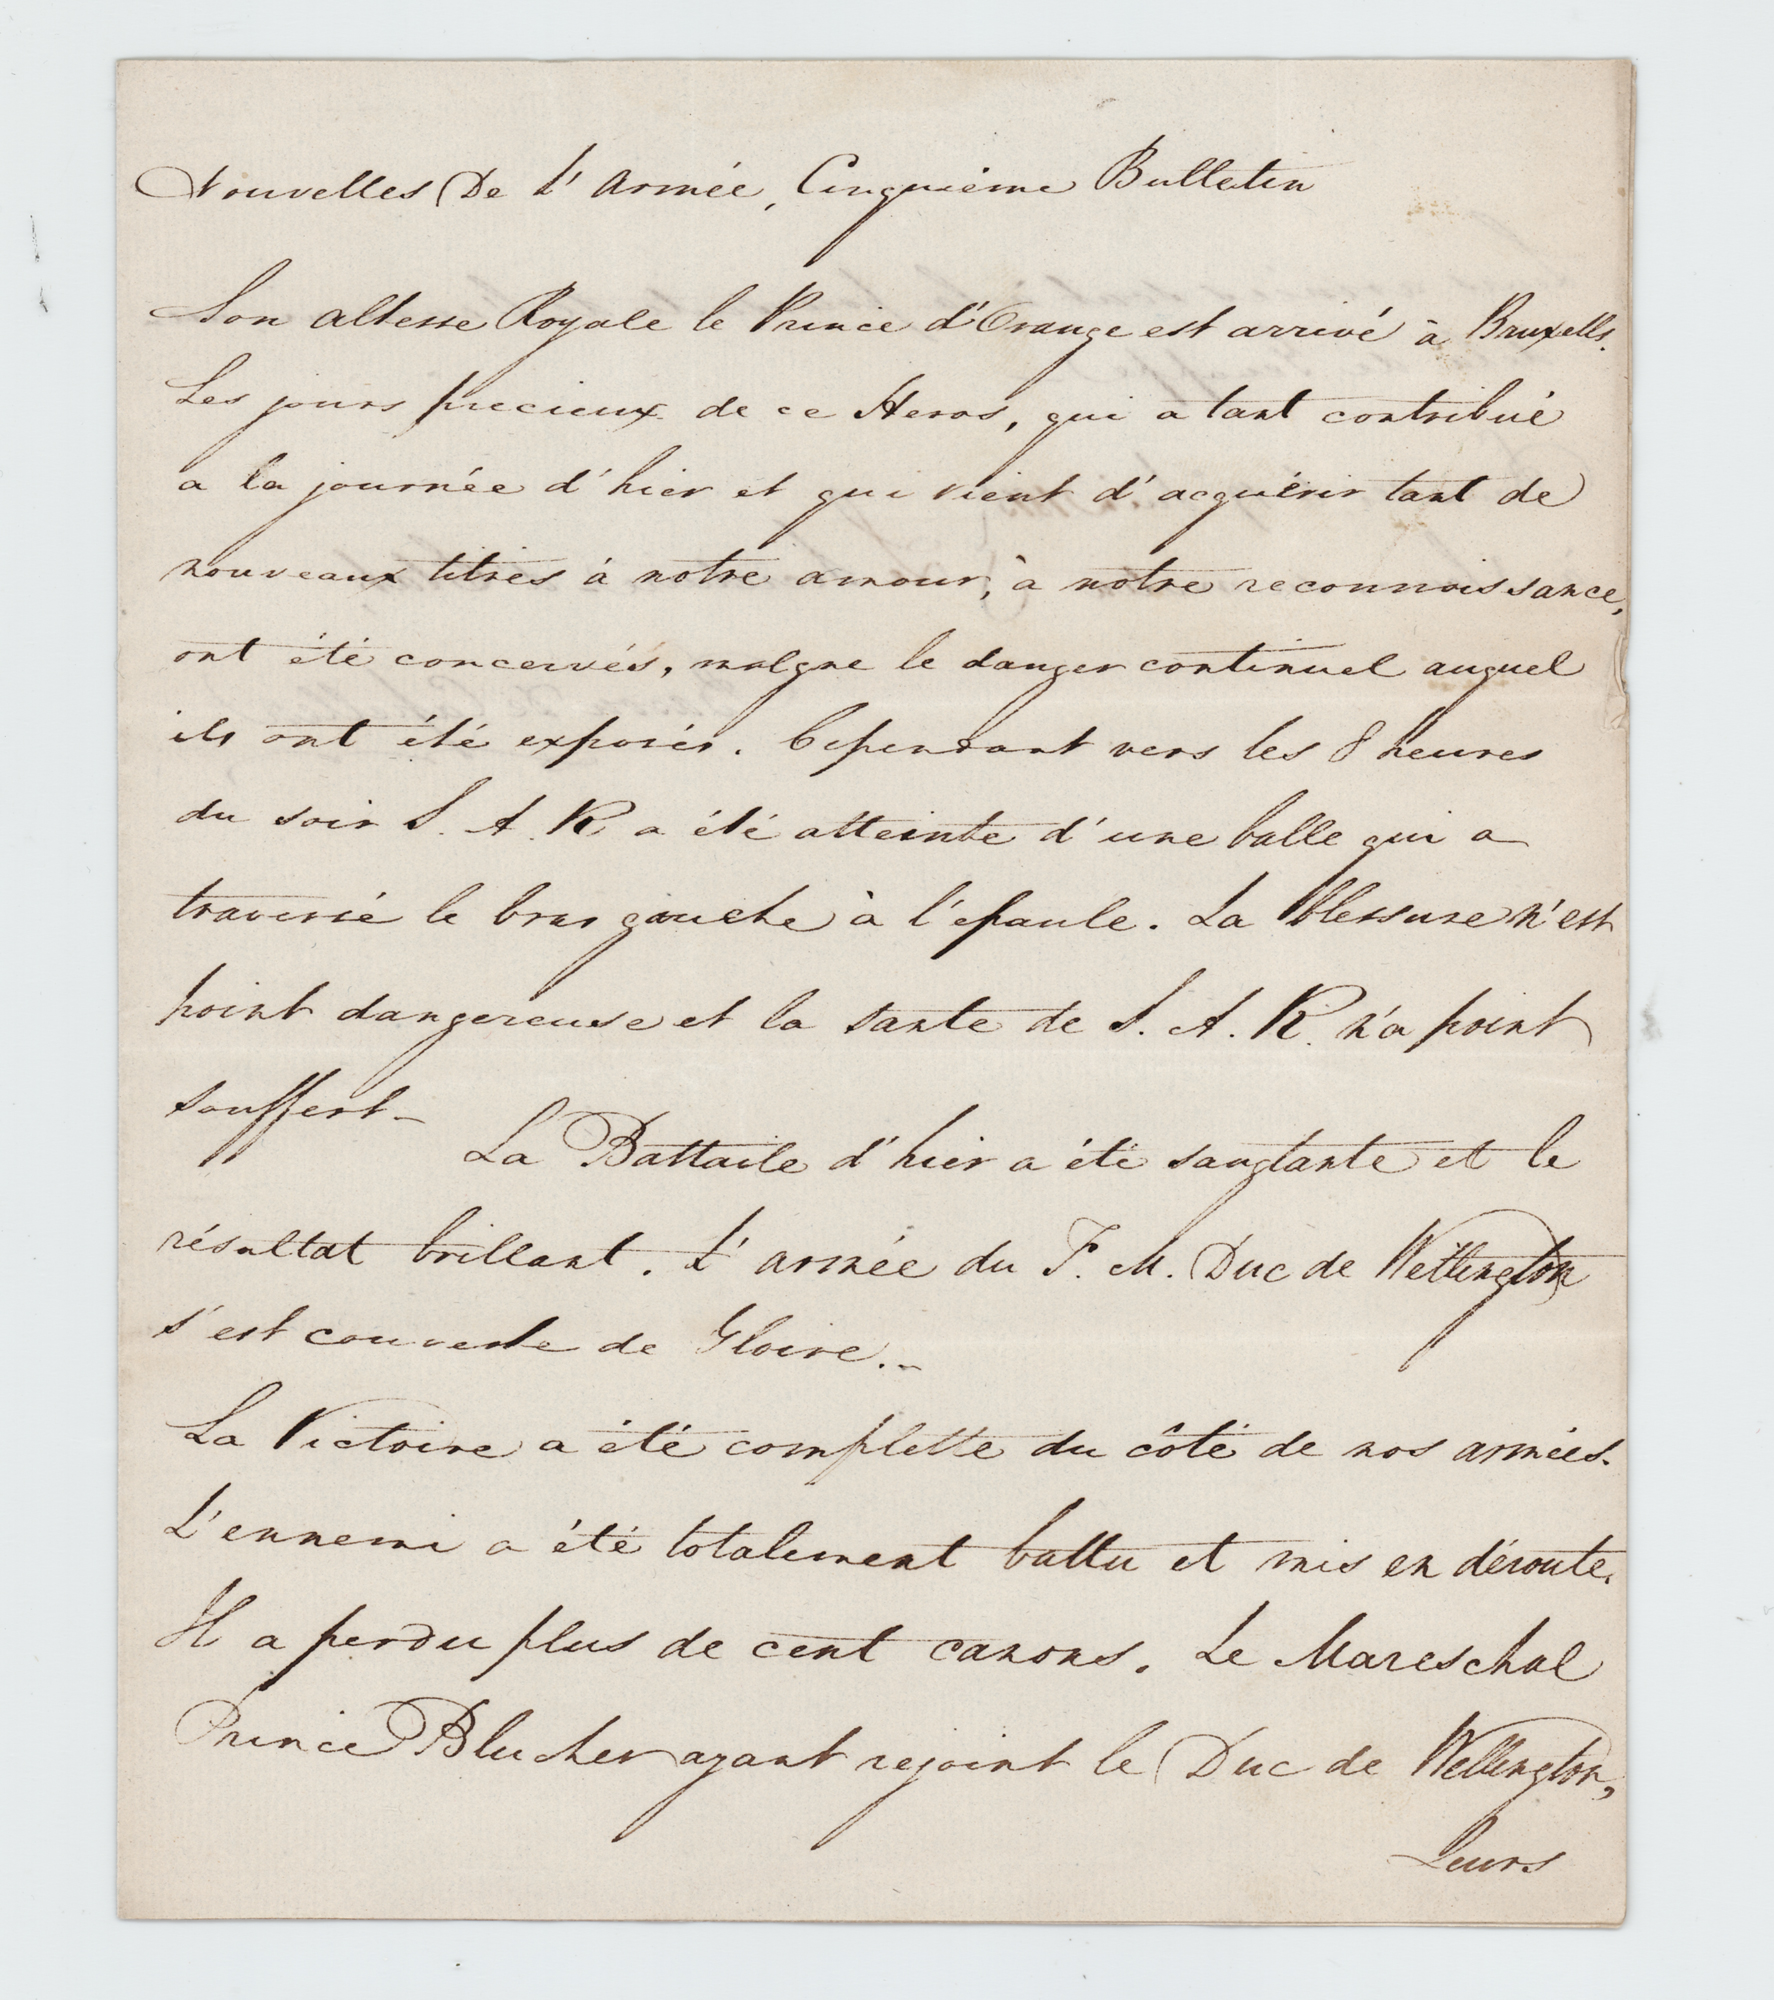 Nouvelles De l'armée, Cinquième Bulletin
Son altesse Royale le Prince d'Orange est arrivé à Bruxells.
Les jours precieux de ce Heros, qui a tant contribué
a la journée d'hier et qui vient d'acquérir tant de
nouveaux titres à notre amour, à notre reconnoissance,
ont été concervés, malgre le danger continuel auquel
ils ont été exposés. Cependant vers les 8 heures
du soir S. A. R a été atteinte d'une balle qui a
traversé le bras gauche à l'epaule. La blessure n'est
point dangereuse et la sante de S. A. R. n'a point
souffert—
La Battaile d'hier a été sanglante et le
résultat brillant. L'armée du F. M. Duc de Wellington
s'est couverte de Gloire.—
La Victoire a été complette du côté de nos armées.
L'ennemi a été totalement battu et mis en déroute.
Il a perdu plus de cent canons. Le Mareschal
Prince Blucher ayant rejoint le Duc de Wellington,
Leurs